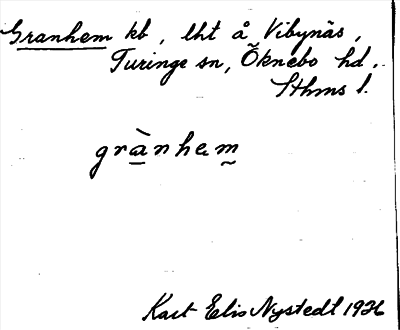 Granhem kb, lht å Vibynäs,
Turinge sn, Öknebo hd.
Sthms l.
grànhem
Karl Elis Nystedt 1926